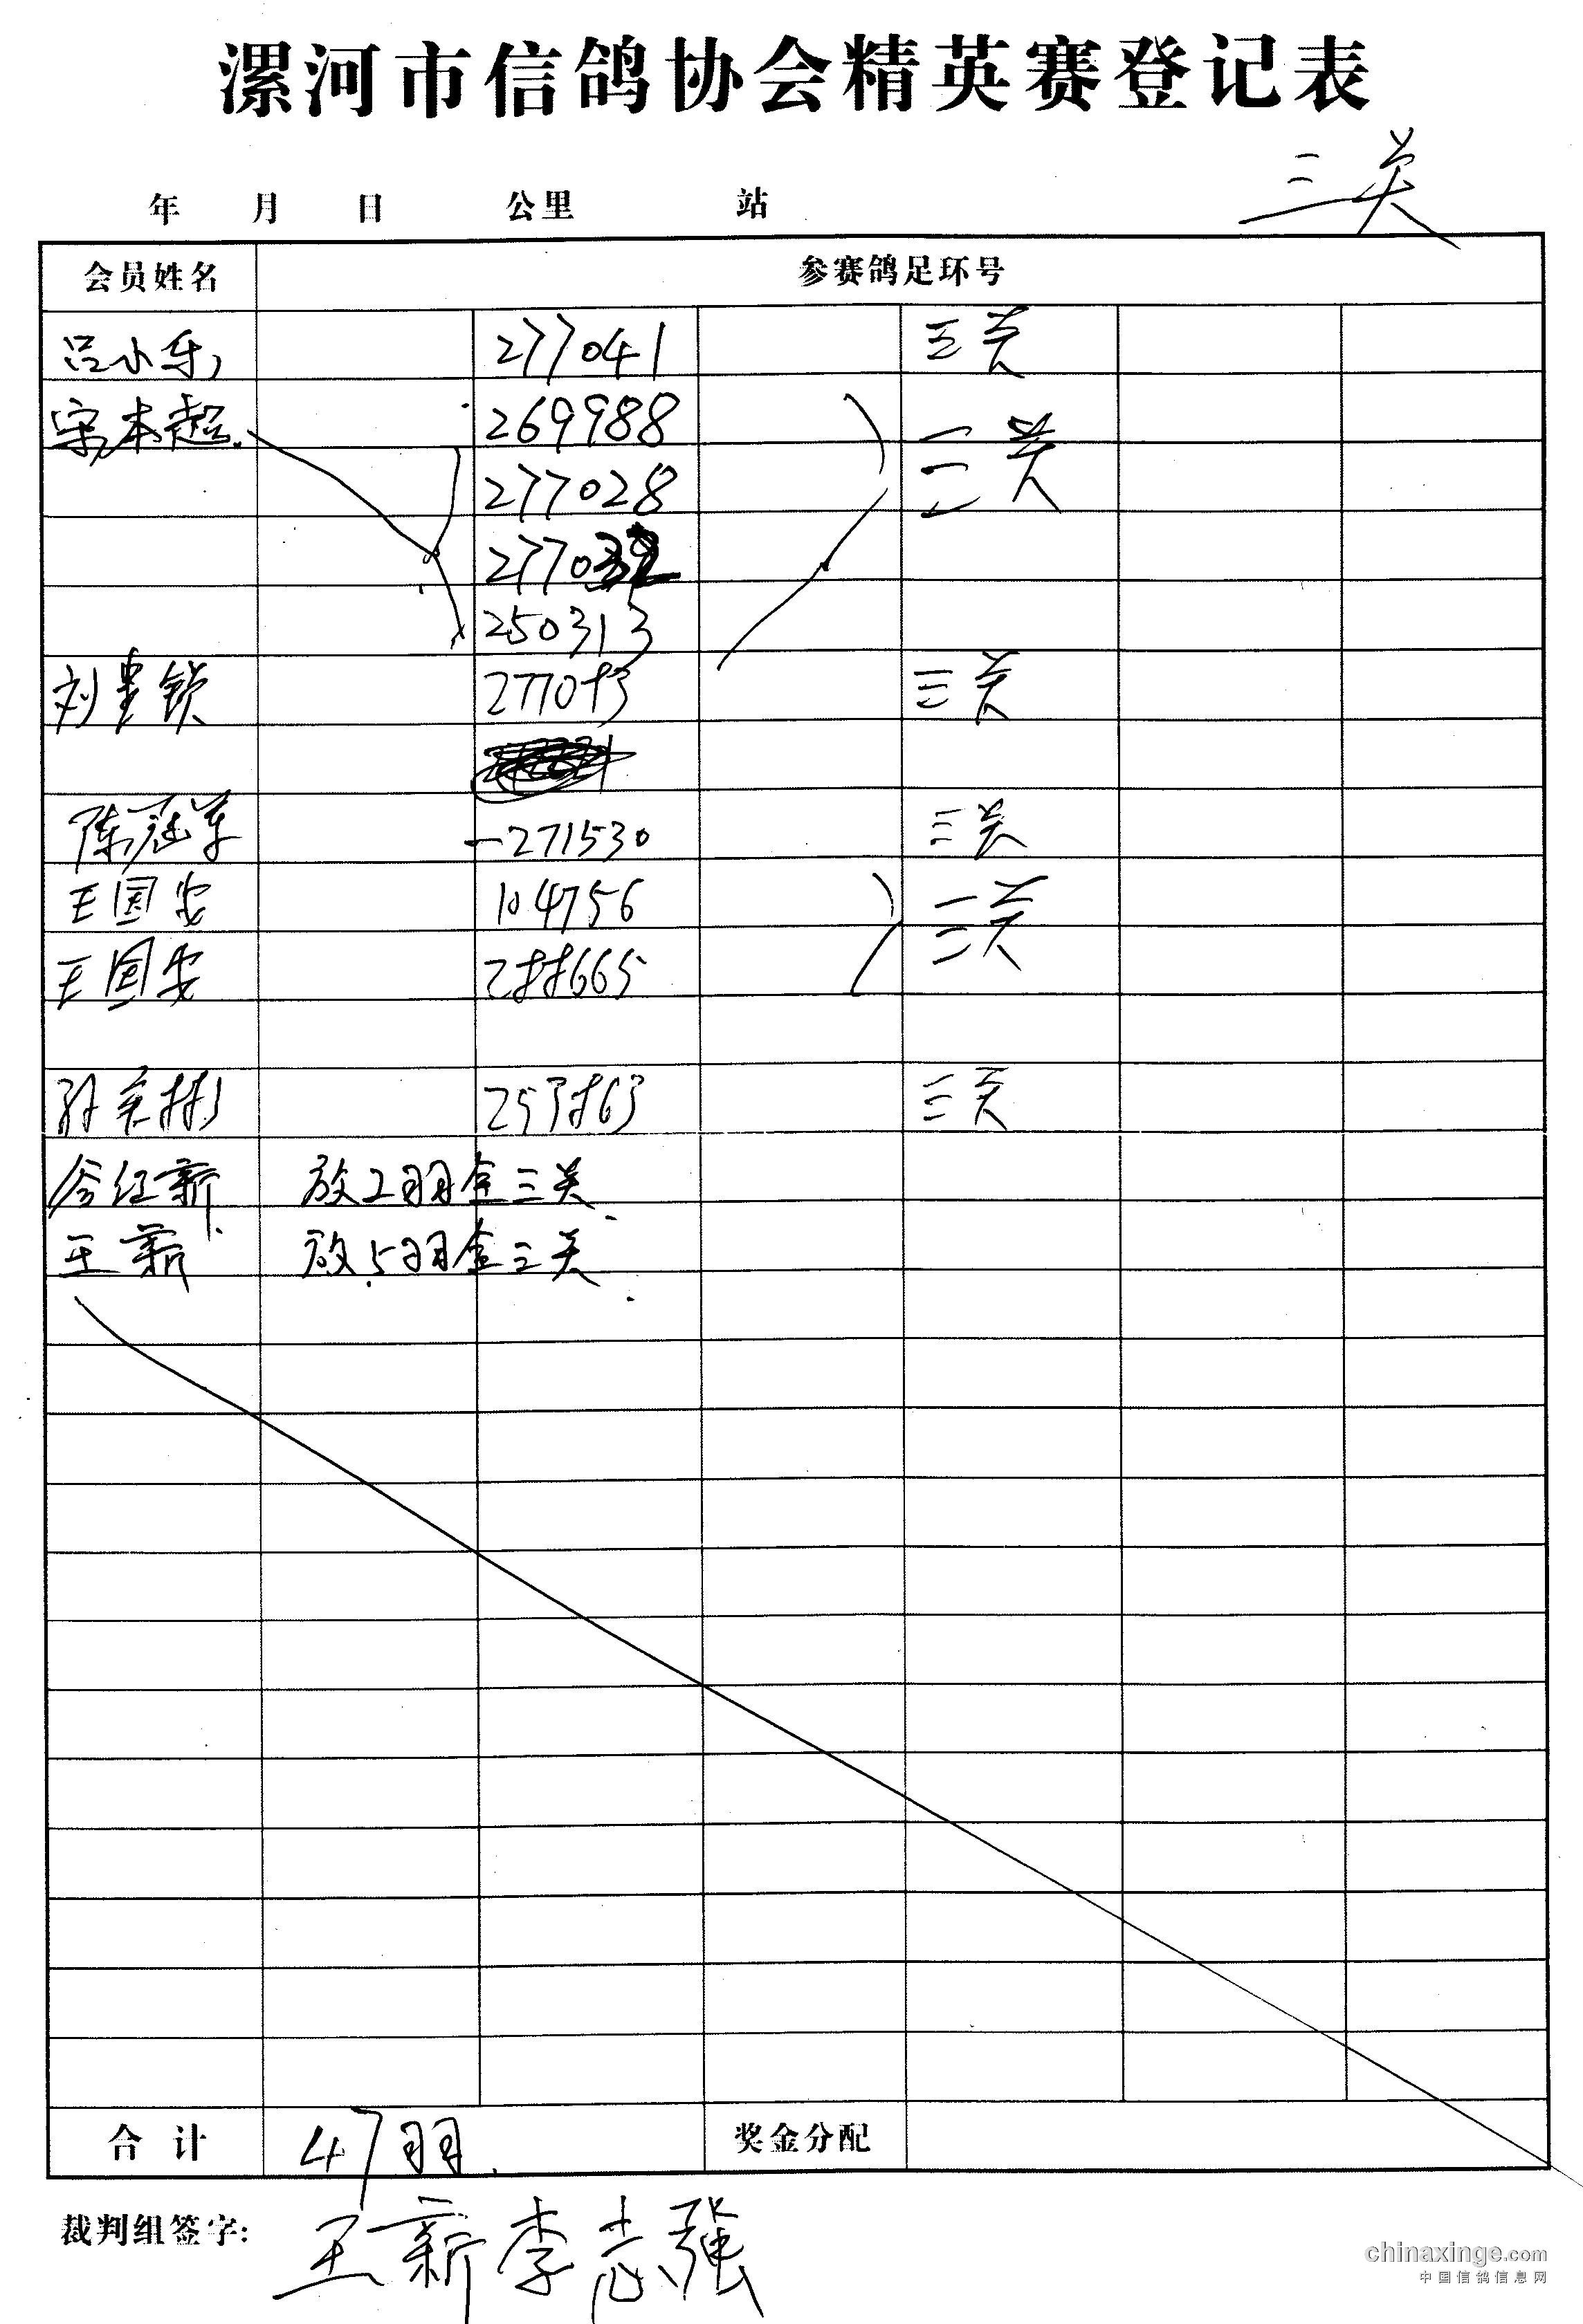 漯河市信鸽协会精英赛登记表
三关
年 月 日 公里 站
会员姓名 参赛鸽足环号
吕小乐 277041 三关
宋本超 269988 三关
277028
27703
250313
刘贵锁 277093 三关
陈冠军 271530 三关
王国安 104756 三关
王国安 244665
孙英彬 253463 三关
谷红新 放2羽全三关
王新 放5羽全三关
合计 47羽 奖金分配
裁判组签字: 王新 李志强
chinaxinge.com
中国信鸽信息网